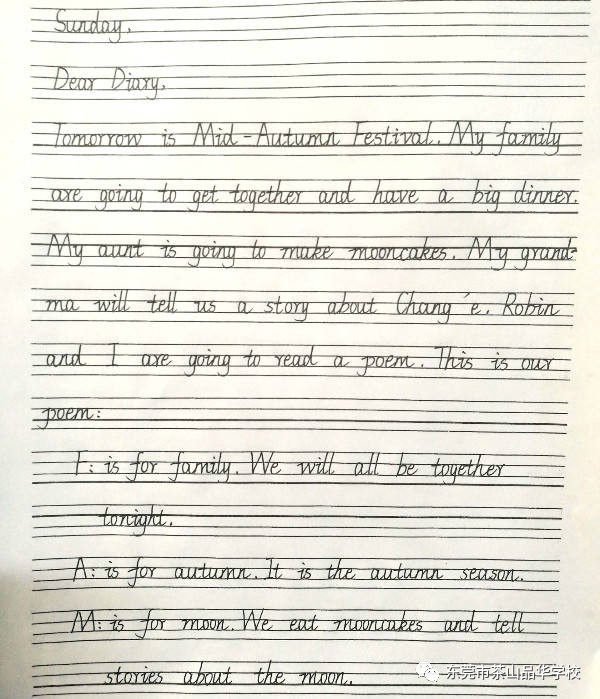 Sunday,
Dear Diary,
Tomorrow is Mid-Autumn Festival. My family
are going to get together and have a big dinner.
My aunt is going to make mooncakes. My grand-
ma will tell us a story about Chang'e. Robin
and I are going to read a poem. This is our
poem:
F: is for family. We will all be together
tonight.
A: is for autumn. It is the autumn season.
M: is for moon. We eat mooncakes and tell
stories about the moon.
东莞市茶山品华学校